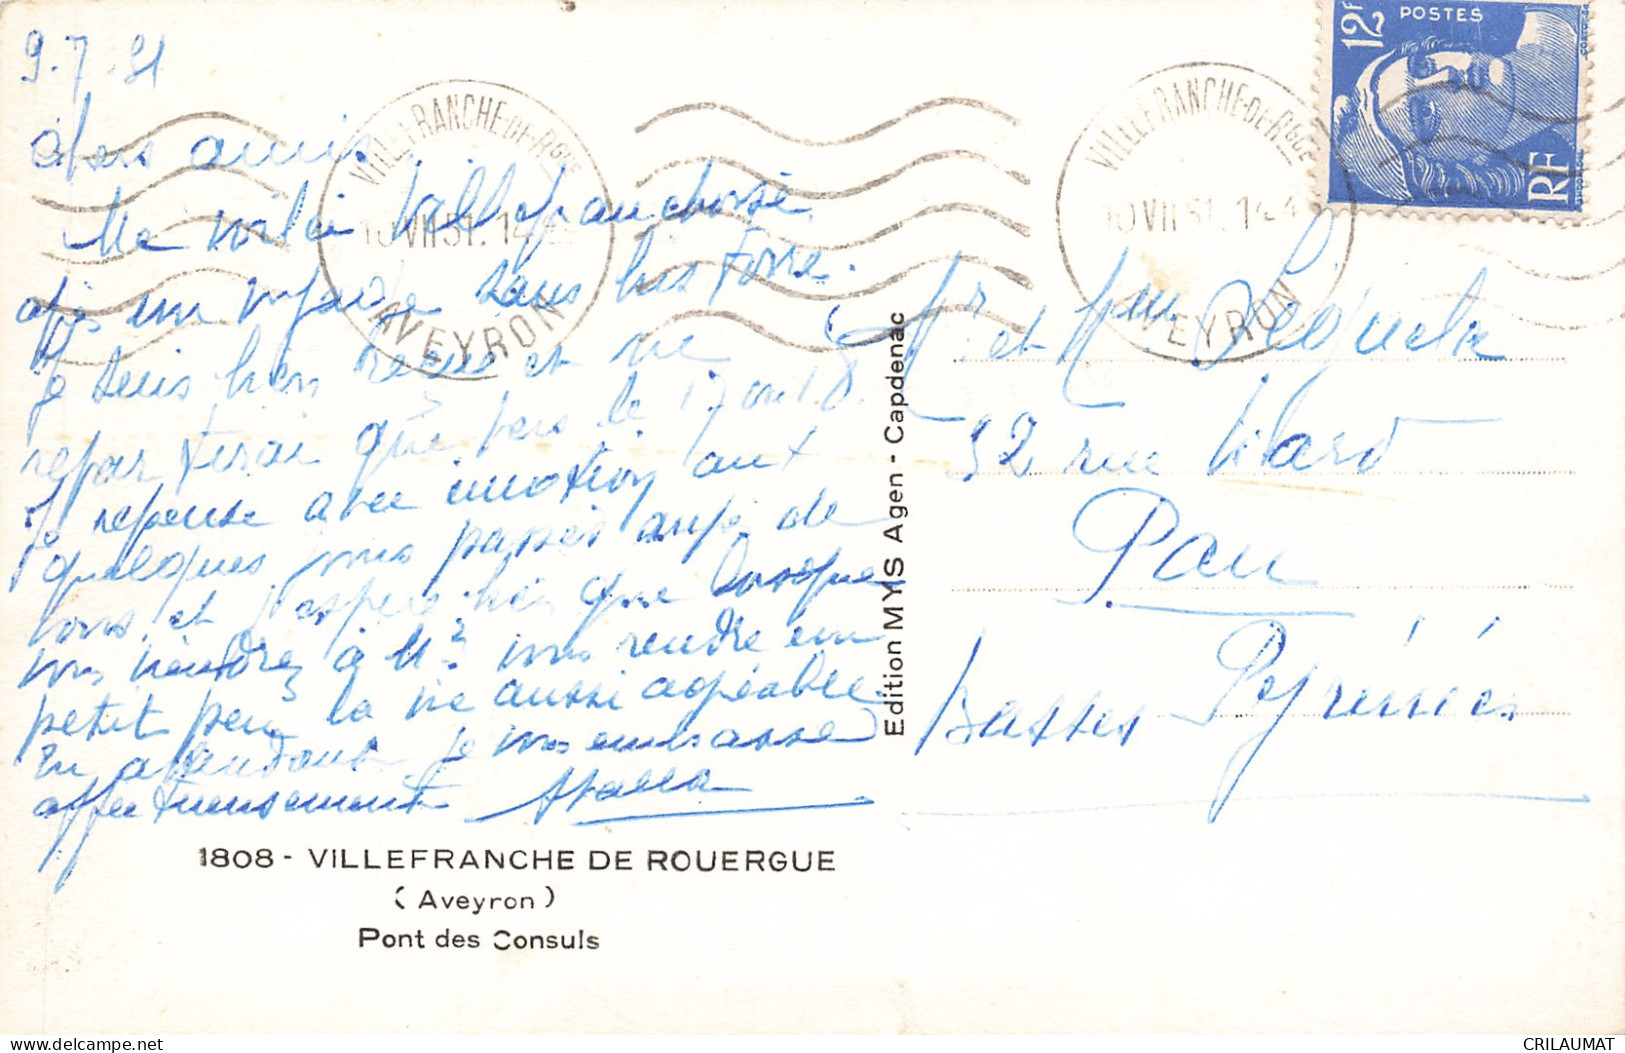 9.7.51
chers amis
Me voilà Villefranchoise
après un voyage sans histoire.
Je suis bien reçue et ne
repartirai que vers le 17 ou 18.
Je repense avec émotion aux
quelques jours passés auprès de
vous et j'espère bien que lorsque
vous viendrez à vous rendre un
petit peu la vie aussi agréable.
En attendant je vous embrasse
affectueusement
1808 - VILLEFRANCHE DE ROUERGUE
(Aveyron)
Pont des Consuls
Edition MYS Agen - Capdenac
VILLEFRANCHE-DE-RGUE
10 VII 51. 14
AVEYRON
VILLEFRANCHE-DE-RGUE
10 VII 51. 14
AVEYRON
12F POSTES
RF
Mr et Mme
rue
Pau
Basses Pyrénées
CRILAUMAT